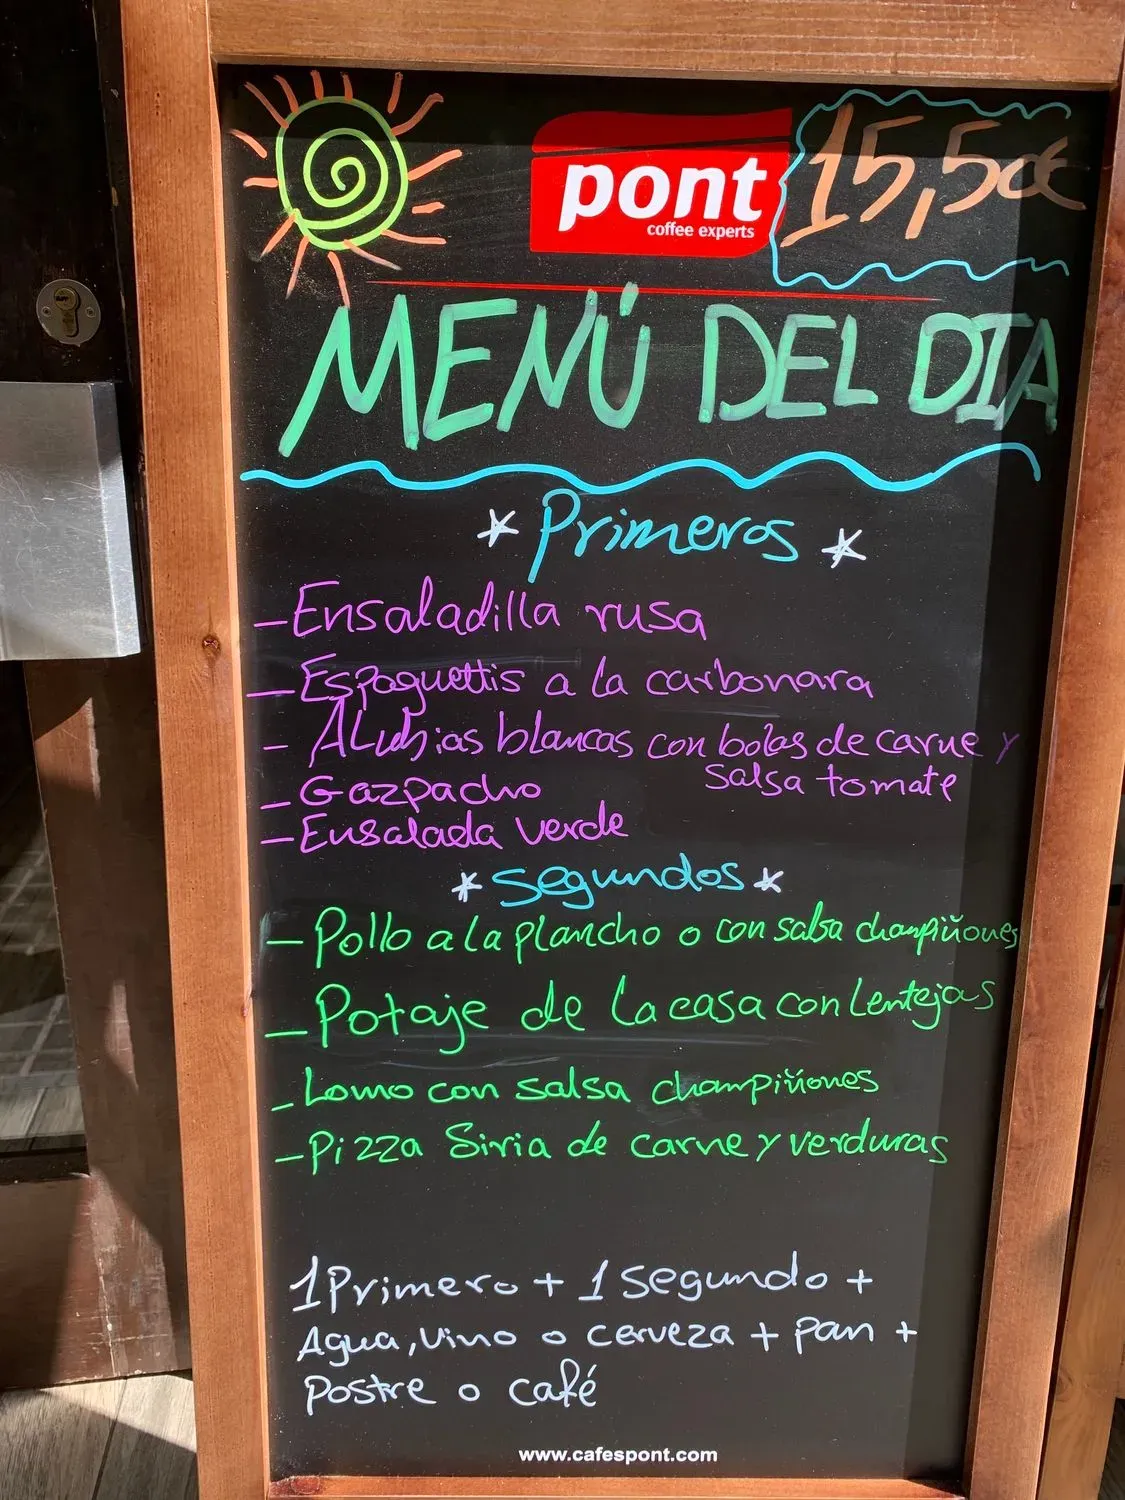 pont
coffee experts
15,50€
MENÚ DEL DIA
* Primeros *
- Ensaladilla rusa
- Espaguettis a la carbonara
- Alubias blancas con bolas de carne y
salsa tomate
- Gazpacho
- Ensalada verde
* Segundos *
- Pollo a la plancho o con salsa champiñones
- Potaje de la casa con lentejas
- Lomo con salsa champiñones
- Pizza Siria de carne y verduras
1 Primero + 1 Segundo +
Agua, vino o cerveza + pan +
Postre o café
www.cafespont.com